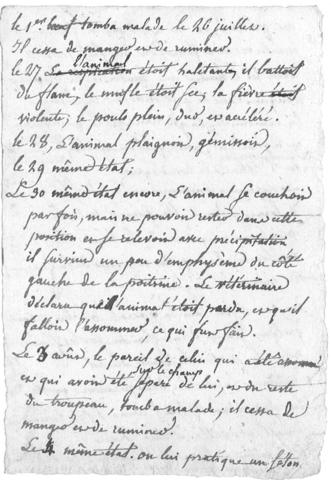 le 1er bœuf tomba malade le 26 juillet.
Il cessa de manger et de ruminer.
l'animal
le 27 La respiration étoit habitante, il battoit
du flanc, le mufle étoit sec, la fièvre étoit
violente; le pouls plein, dur, et accéléré.
le 28, L'animal plaignoit, gémissoit,
le 29 même état;
Le 30 même état encore, L'animal se couchoit
par fois, mais ne pouvoit rester dans cette
position et se relevoit avec précipitation
il survint un peu d'emphysème du côté
gauche de la poitrine. Le vétérinaire
déclara que l'animal étoit perdu, et qu'il
falloit l'assommer, ce qui fut fait.
Le 3 août, le pareil de celui qui a été assommé
sur le champ
et qui avoit été séparé de lui, et du reste
du troupeau, tomba malade; il cessa de
manger et de ruminer.
Le 4 même état. on lui pratique un séton